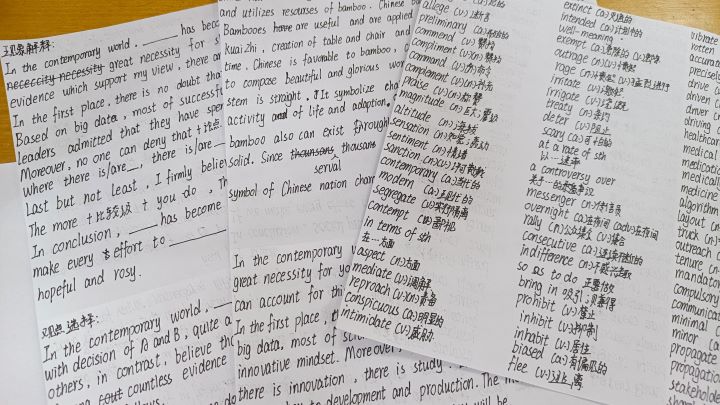 现象解释:
In the contemporary world, ____ has beco
nececcity necessity great necessity for s
evidence which support my view, there ar
In the first place, there is no doubt that
Based on big data, most of successfu
leaders admitted that they have spen
Moreover, no one can deny that
Where there is/are__, there is/are
Last but not least, I firmly believ
The more +比较级 + you do, Th
In conclusion, ____ has become
make every effort to ____
hopeful and rosy.
观点选择:
In the contemporary world,
with decision of A and B, quite a
others, in contrast, believe tha
countless evidence
and utilizes resourses of bamboo. Chinese ba
Bambooes have are useful and are applied
kuai zhi, creation of table and chair and
time. Chinese is favonable to bamboo,
to compose beautiful and glorious wor
stem is straight. It symbolize tha
activity and of life and adoption.
bamboo also can exist through
solid. Since thounsans thousans
serval
symbol of Chinese nation chara
In the contemporary
great necessity for yo
can account for thi
In the first place,
big data, most of
innovative mindset. Moreover,
there is innovation, there is study,
to development and production. The m
will be
allege (v.)
preliminary (a.)
commend (v.) 赞扬
compliment (v.)(n.) 赞扬
command (v.) 命令
complement (v.)(n.) 补充
praise (v.)(n.) 称赞
magnitude (n.) 巨大; 重要
altitude (n.) 海拔
sensation (n.) 知觉; 轰动
sentiment (n.) 情绪
sanction (n.)(v.) 许可; 制裁
contemporary (a.) 当代的
modern (a.)
segregate (v.) 实行隔离
contempt (n.) 鄙视
in terms of sth
在…方面
aspect (n.) 方面
mediate (v.) 调解
reproach (v.)(n.) 责备
conspicuous (a.) 明显的
intimidate (v.) 威胁
extinct (a.) 灭绝的
intended (a.) 计划中的
well-meaning
exempt (a.)
outrage (n.)(v.)
rage (n.)
irritate (v.) 激怒
irrigate (v.) 灌溉
treaty (n.) 条约
deter (v.) 阻止
scary (a.) 可怕的
at a rate of sth
以…速率
a controversy over
关于…的争议
messenger (n.) 传信员
overnight (a.) 在夜间 (adv.) 在夜间
rally (n.) 公众集会 (v.) 集合
consecutive (a.) 连续不断的
indifference (n.) 不感兴趣
so as to do
bring in 吸引; 获得
prohibit (v.) 禁止
inhibit (v.) 抑制
inhabit (v.) 居住
biased (a.) 有偏见的
flee (v.) 逃离
vibrate
rotten
accurate
precisel
drive (v
driven
driver (
driving
healthc
medical
medicati
medicall
medicine
algorithm
layout (n
truck (n.)
outreach
tenure (n
mandato
compulsory
communicat
minimal
minor (a
propagate
propagati
stakehold
share